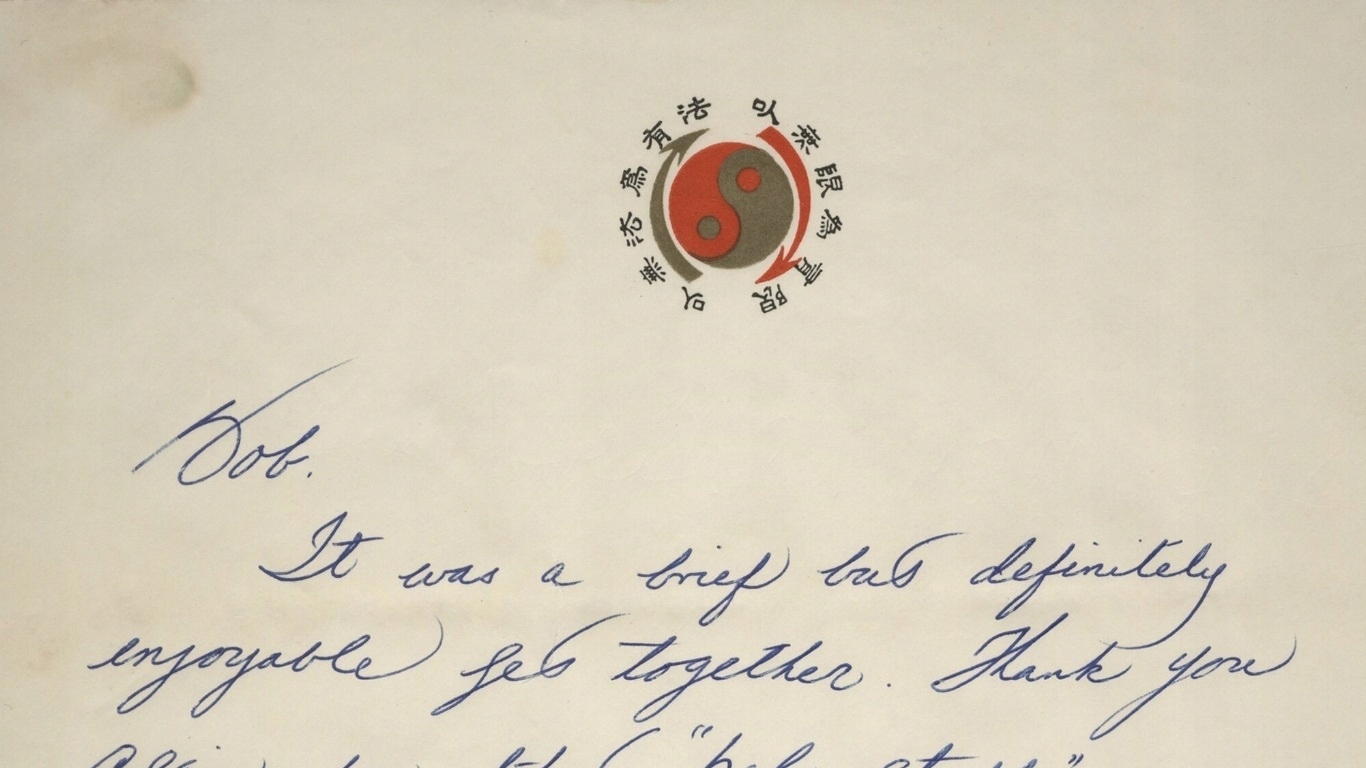 以無法爲有法
以無限為有限
Bob.
It was a brief but definitely
enjoyable get together. Thank you